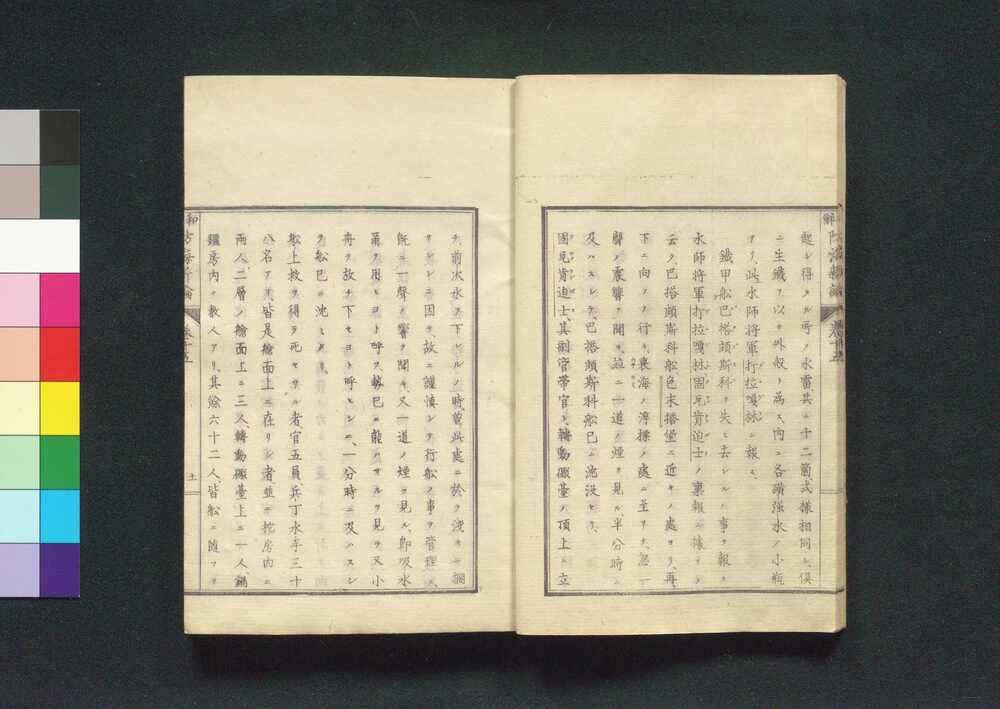 起シ得タル所ノ水雷其二十二箇式樣相同シ、俱
ニ生鐵ヲ以テ外殼ト爲ス、內ニ各磺强水ノ小瓶
ヲリ、此水師將軍打拉嘎林ニ報ス、
鐵甲船巴塔頗斯科ヲ失ヒ去シノ事ヲ報ス
水師將軍打拉嘎林固見肯迫士ノ稟報ニ據ルヲ
云ク、巴塔頗斯科船色末搭堡ニ近キノ處ヨリ、再
下ニ向テ行キ裏海ノ淳操ノ處ニ至リテ、忽一
聲ノ震響ヲ聞キ、並ニ一道ノ煙ヲ見ル、半分時ニ
及ハスシテ、巴塔頗斯科船已ニ沈没セリ、
固見肯迫士、其副管帶官ト、轉動礮臺ノ頂上ニ立
チ、前次水ヲ下シルノ時、曾此處ニ於テ淺キニ擱
ヲセシニ因テ、故ニ謹愼シテ行船ノ事ヲ管理ス、
旣ニ一聲ノ響ヲ聞キ、又一道ノ煙ヲ見ル、卽吸水
筩ヲ用ヒヨト呼ヲ、勢已ニ能ハサルヲ見テ、又小
舟ヲ放チ下セヨト呼ヒシニ、一分時ニ及ハスシ
テ船已ニ沈ミタリ
船上救ヲ得テ死セサル者官五員兵丁水手三十
八名アリ皆是艙面上ニ在リシ者並ニ柁房內ニ
兩人、二層ノ艙面上ニ三人、轉動礮臺上ニ一人、鍋
鑪房內ニ數人アリ、其餘六十二人、皆船ニ隨フテ
卷十五
卷十五